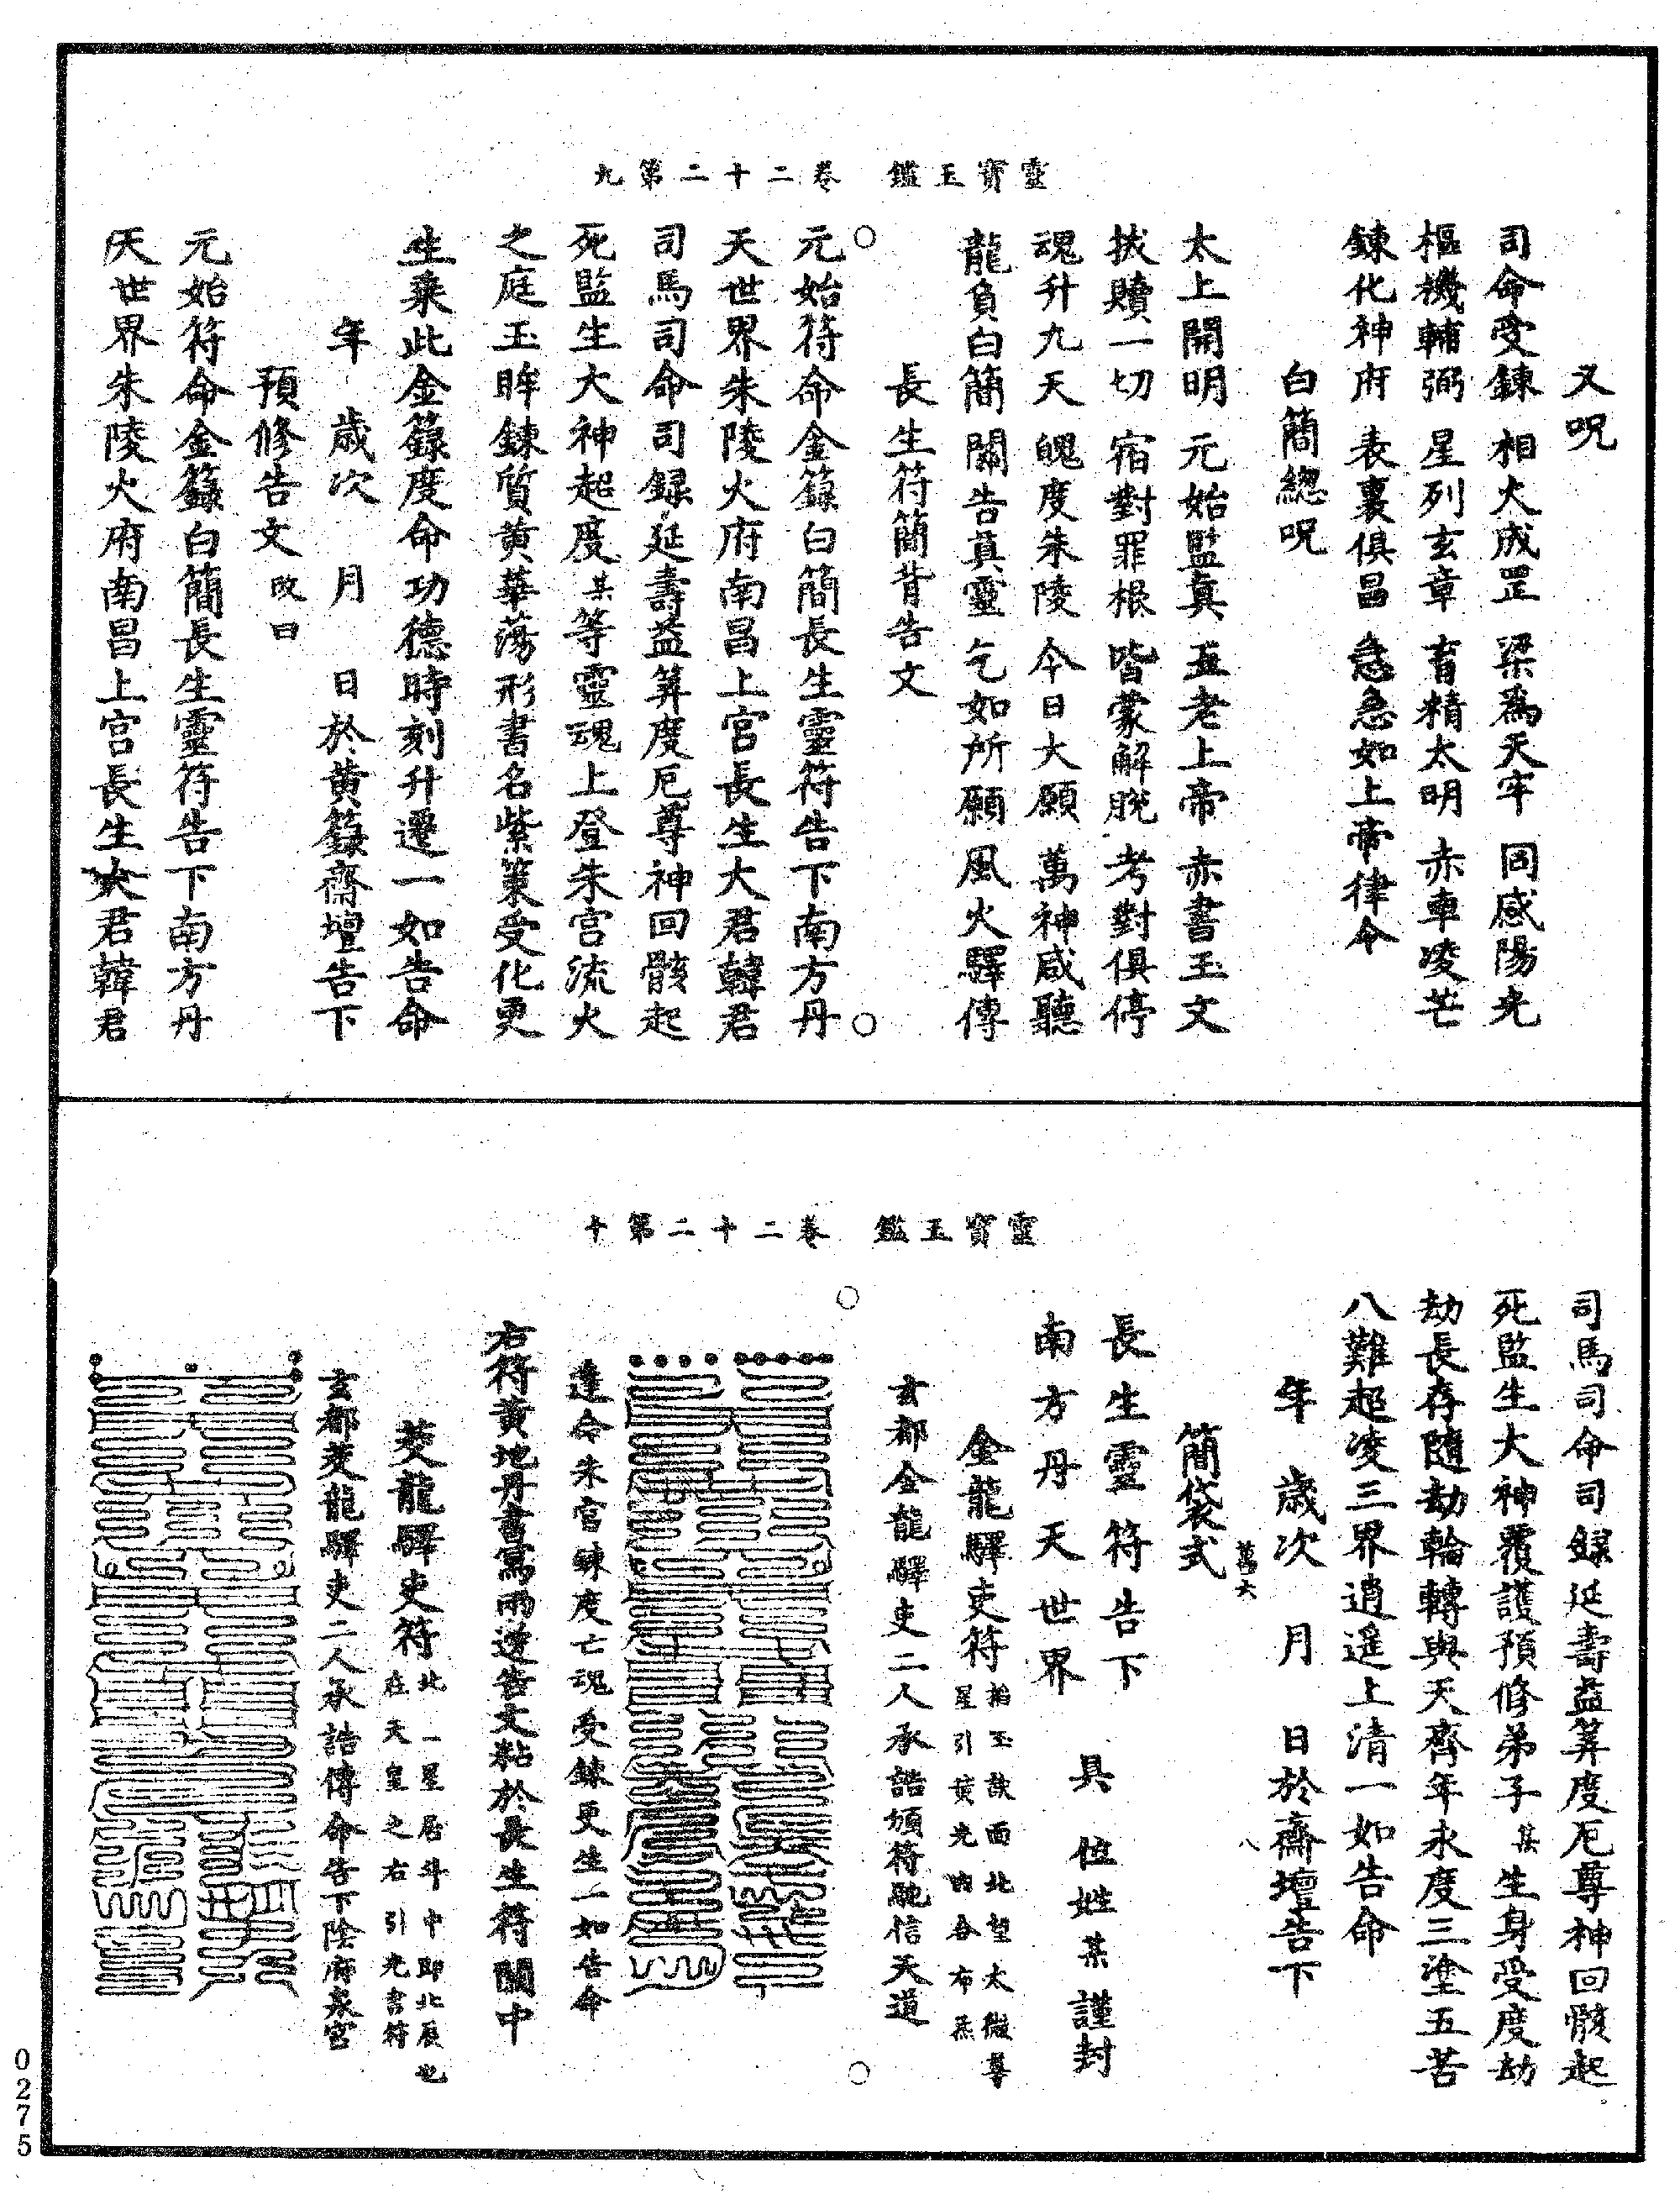 靈寶玉鑑　卷二十二第九
又呪
司命受鍊　相火成罡　梁為天牢　同感陽光
樞機輔弼　星列玄章　畜精太明　赤車凌芒
鍊化神府　表裏俱昌　急急如上帝律令
白簡總呪
太上開明　元始監真　五老上帝　赤書玉文
拔贖一切　宿對罪根　皆蒙解脫　考對俱停
魂升九天　魄度朱陵　今日大願　萬神咸聽
龍負白簡　關告真靈　乞如所願　風火驛傳
長生符簡背告文
元始符命金籙白簡長生靈符告下南方丹
天世界朱陵火府南昌上宮長生大君韓君
司馬司命司録延壽益筭度厄尊神回骸起
死監生大神起度某等靈魂上登朱宮流火
之庭玉眸鍊質黃華蕩形書名紫策受化更
生乘此金籙度命功德時刻升遷一如告命
年　歲次　月　日於黃籙齋壇告下
預修告文改曰
元始符命金籙白簡長生靈符告下南方丹
天世界朱陵火府南昌上宮長生大君韓君
靈寶玉鑑　卷二十二第十
司馬司命司録延壽益筭度厄尊神回骸起
死監生大神覆護預修弟子某生身受度劫
劫長存隨劫輪轉與天齊年永度三塗五苦
八難超凌三界逍遙上清一如告命
年　歲次　月　日於齋壇告下
萬六
八
簡袋式
長生靈符告下　具位姓某謹封
南方丹天世界
金龍驛吏符掐玉訣面北望太微尊
星引黃光吻合布炁
玄都金龍驛吏二人承誥頒符馳信天道
逢命朱宮鍊度亡魂受鍊更生一如告命
右符黃地丹書寫兩邊告文粘於長生符關中
茭龍驛吏符北一星居斗中即北辰也
在天皇之右引光書符
玄都茭龍驛吏二人承誥傳命告下陰府泉宮
0275